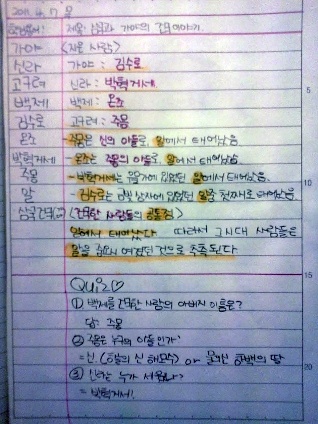 2011. 4. 17 일
제목: 삼국과 가야의 건국이야기.
가야 <지은 사람>
신라 가야 : 김수로
고구려 신라 : 박혁거세.
백제 백제 : 온조
김수로 고구려 : 주몽
온조 - 주몽은 신의 아들로, 알에서 태어났음.
박혁거세 - 온조는 주몽의 아들로, 알에서 태어났음.
주몽 - 박혁거세는 알에서 태어났음.
알 - 김수로는 상자에 알 중 첫째로 태어났음.
삼국 <건국한 사람들의 공통점>
알에서 태어났다 따라서 그 시대 사람들은
알을 여겼던 것으로 추측된다
Quiz♡
① 백제를 건국한 사람의 아버지 이름은?
답: 주몽
② 주몽은 누구의 아들인가?
= 신, (하늘의 신 해모수) or 물의신 하백의 딸
③ 신라는 누가 세웠나?
= 박혁거세.
5
10
15
20